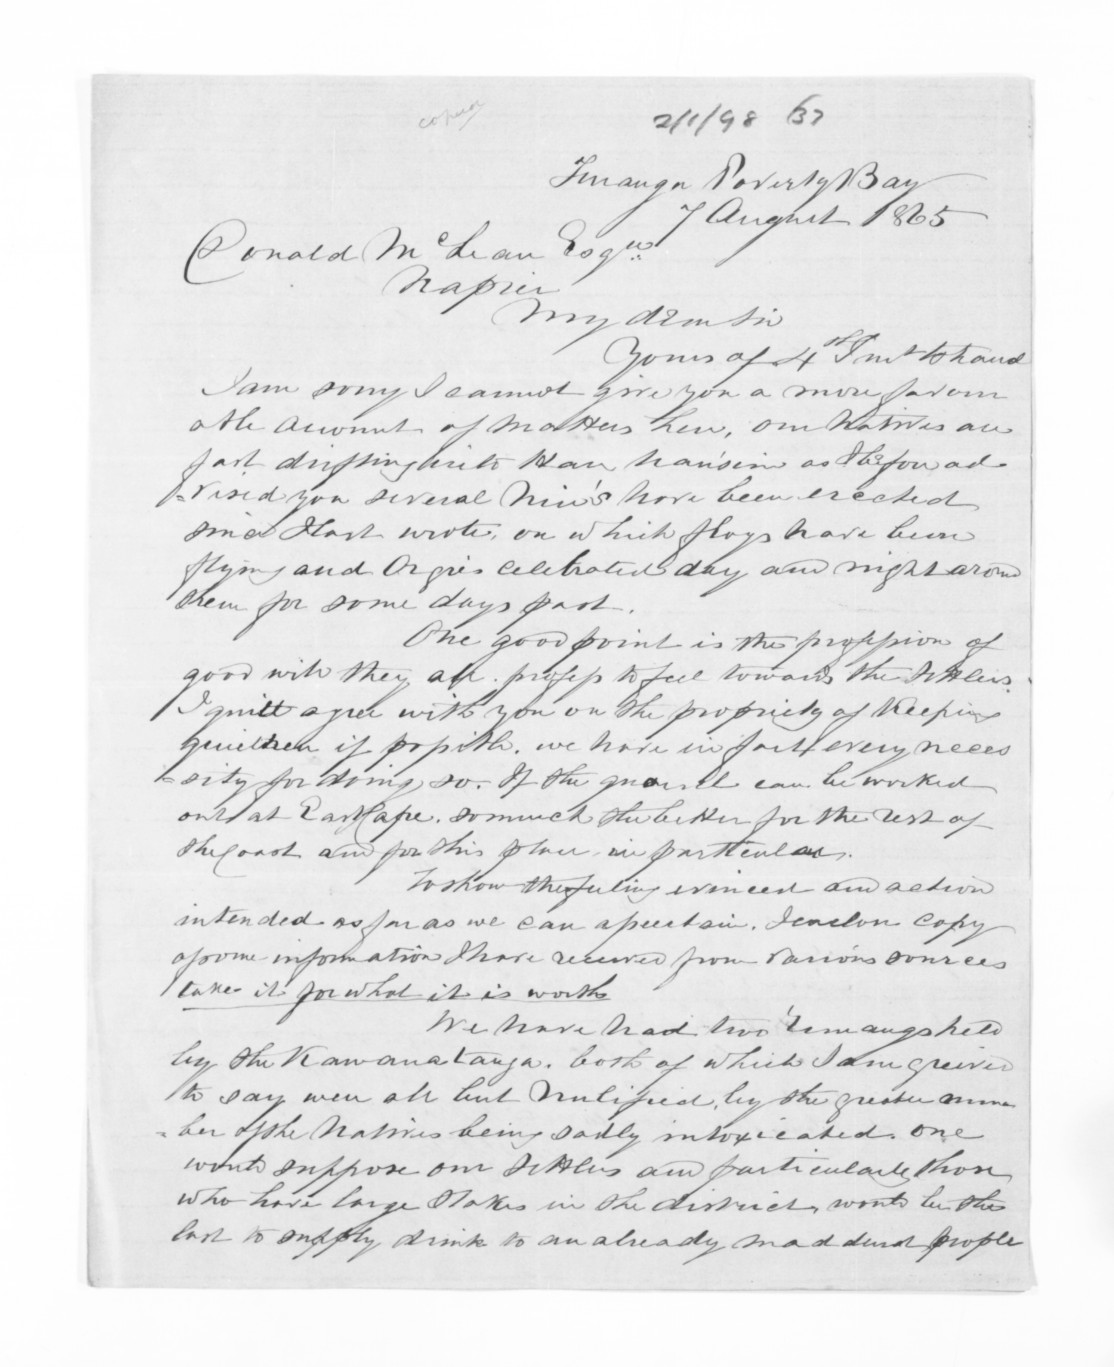 copied
2/1/98 (37
Turanga Poverty Bay
7 August 1865
Donald McLean Esqre
Napier
My dear Sir
Yours of 4th Inst to hand
I am sorry I cannot give you a more favour
able account of matters here, our Natives are
fast drifting into Hau hauism as I before ad
-vised you several Niu's have been erected
since I last wrote, on which flags have been
flying and Orgies celebrated day and night around
them for some days past.
One good point is the profession of
good will they all profess to feel towards the Settlers.
I quite agree with you on the propriety of Keeping
quiet here if possible. we have in fact every neces
-sity for doing so. If the quarrel can be worked
out at East Cape. so much the better for the rest of
the Coast and for this place in particular.
To show the feeling evinced and action
intended as far as we can ascertain, I enclose copy
of some information I have received from various sources
take it for what it is worth
We have had two Runangas held
by the Kawanatanga. both of which I am greived
to say were all but Nulified, by the greater num
-ber of the Natives being sadly intoxicated. one
would suppose our Settlers and particularly those
who have large Stakes in the district, would be the
last to supply drink to an already maddened people